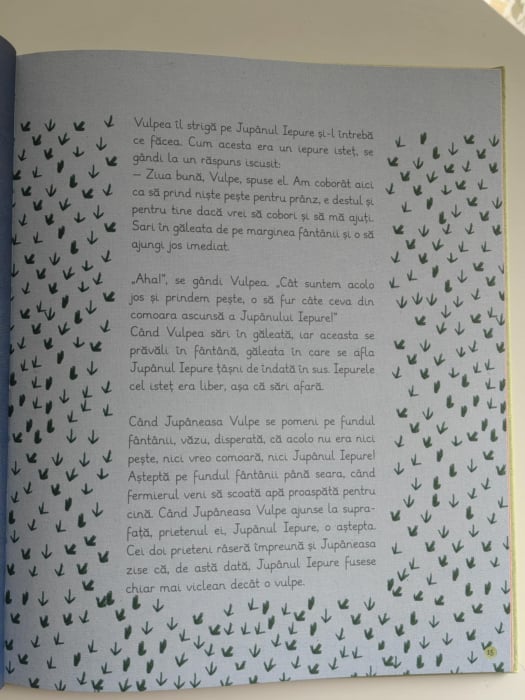 Vulpea îl strigă pe Jupânul Iepure și-l întrebă
ce făcea. Cum acesta era un iepure isteț, se
gândi la un răspuns iscusit:
– Ziua bună, Vulpe, spuse el. Am coborât aici
ca să prind niște pește pentru prânz, e destul și
pentru tine dacă vrei să cobori și să mă ajuți.
Sari în găleata de pe marginea fântânii și o să
ajungi jos imediat.
„Aha!”, se gândi Vulpea. „Cât suntem acolo
jos și prindem pește, o să fur câte ceva din
comoara ascunsă a Jupânului Iepure!”
Când Vulpea sări în găleată, iar aceasta se
prăvăli în fântână, găleata în care se afla
Jupânul Iepure țâșni de îndată în sus. Iepurele
cel isteț era liber, așa că sări afară.
Când Jupâneasa Vulpe se pomeni pe fundul
fântânii, văzu, disperată, că acolo nu era nici
pește, nici vreo comoară, nici Jupânul Iepure!
Așteptă pe fundul fântânii până seara, când
fermierul veni să scoată apă proaspătă pentru
cină. Când Jupâneasa Vulpe ajunse la supra-
față, prietenul ei, Jupânul Iepure, o aștepta.
Cei doi prieteni râseră împreună și Jupâneasa
zise că, de astă dată, Jupânul Iepure fusese
chiar mai viclean decât o vulpe.
15